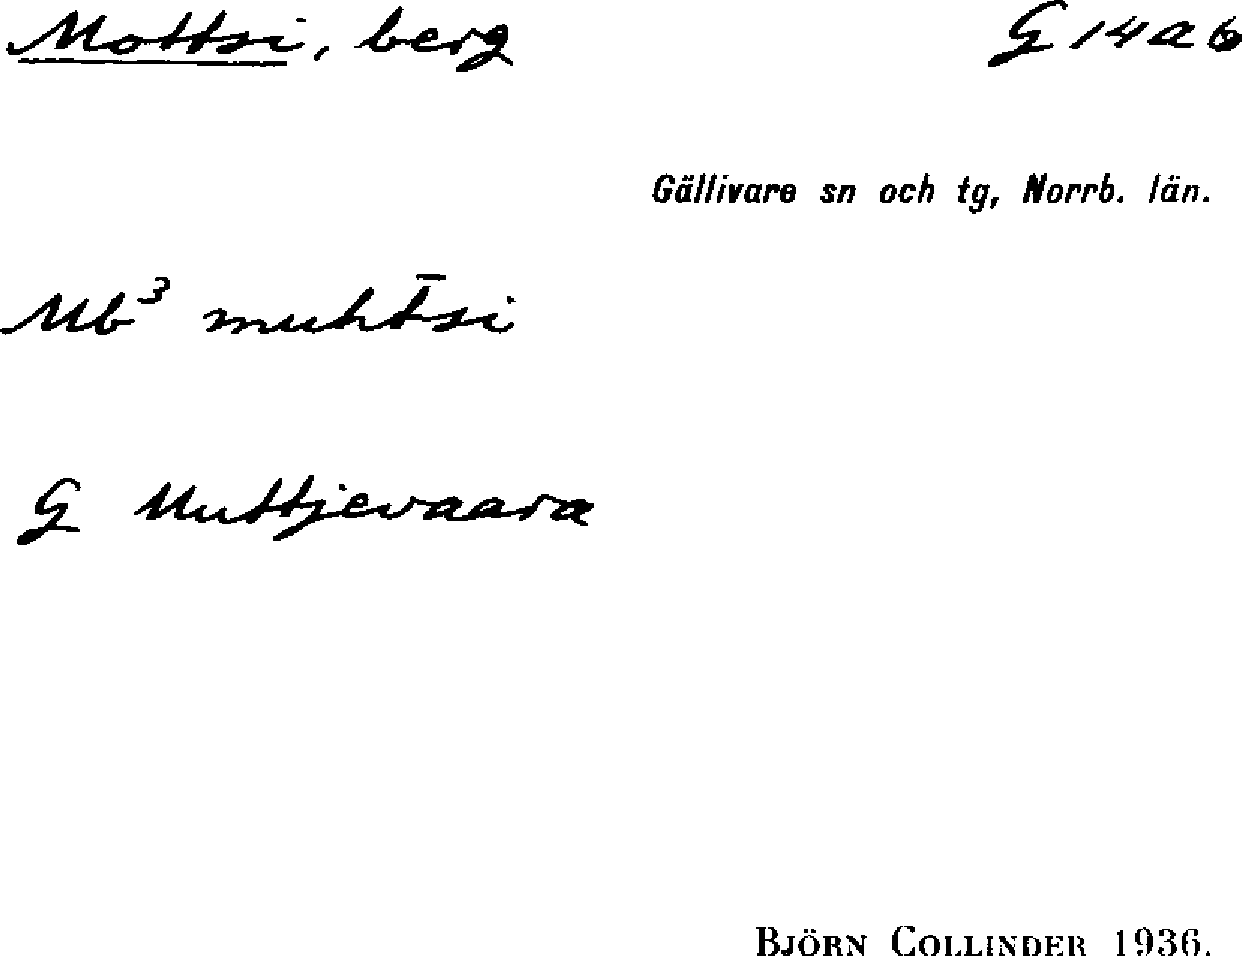 Mottsi, berg G 14 a 6
Gällivare sn och tg, Norrb. län.
Mb³ muht̄si
G Muttjevaara
BJÖRN COLLINDER 1936.